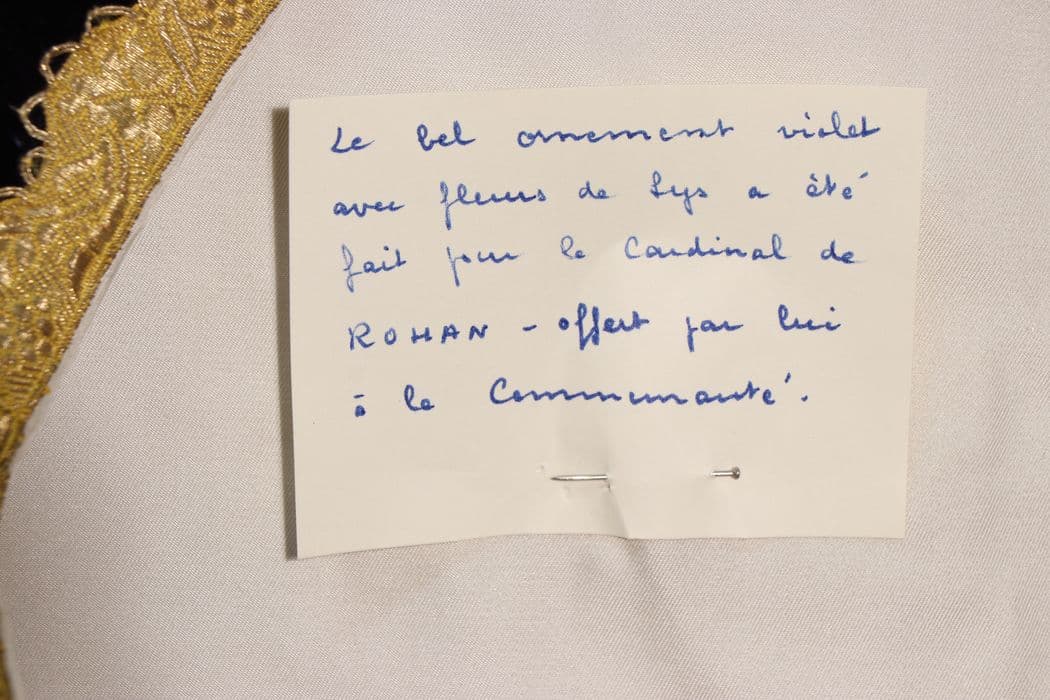 Le bel ornement violet
avec fleurs de Lys a été
fait pour le Cardinal de
ROHAN - offert par lui
à la Communauté.